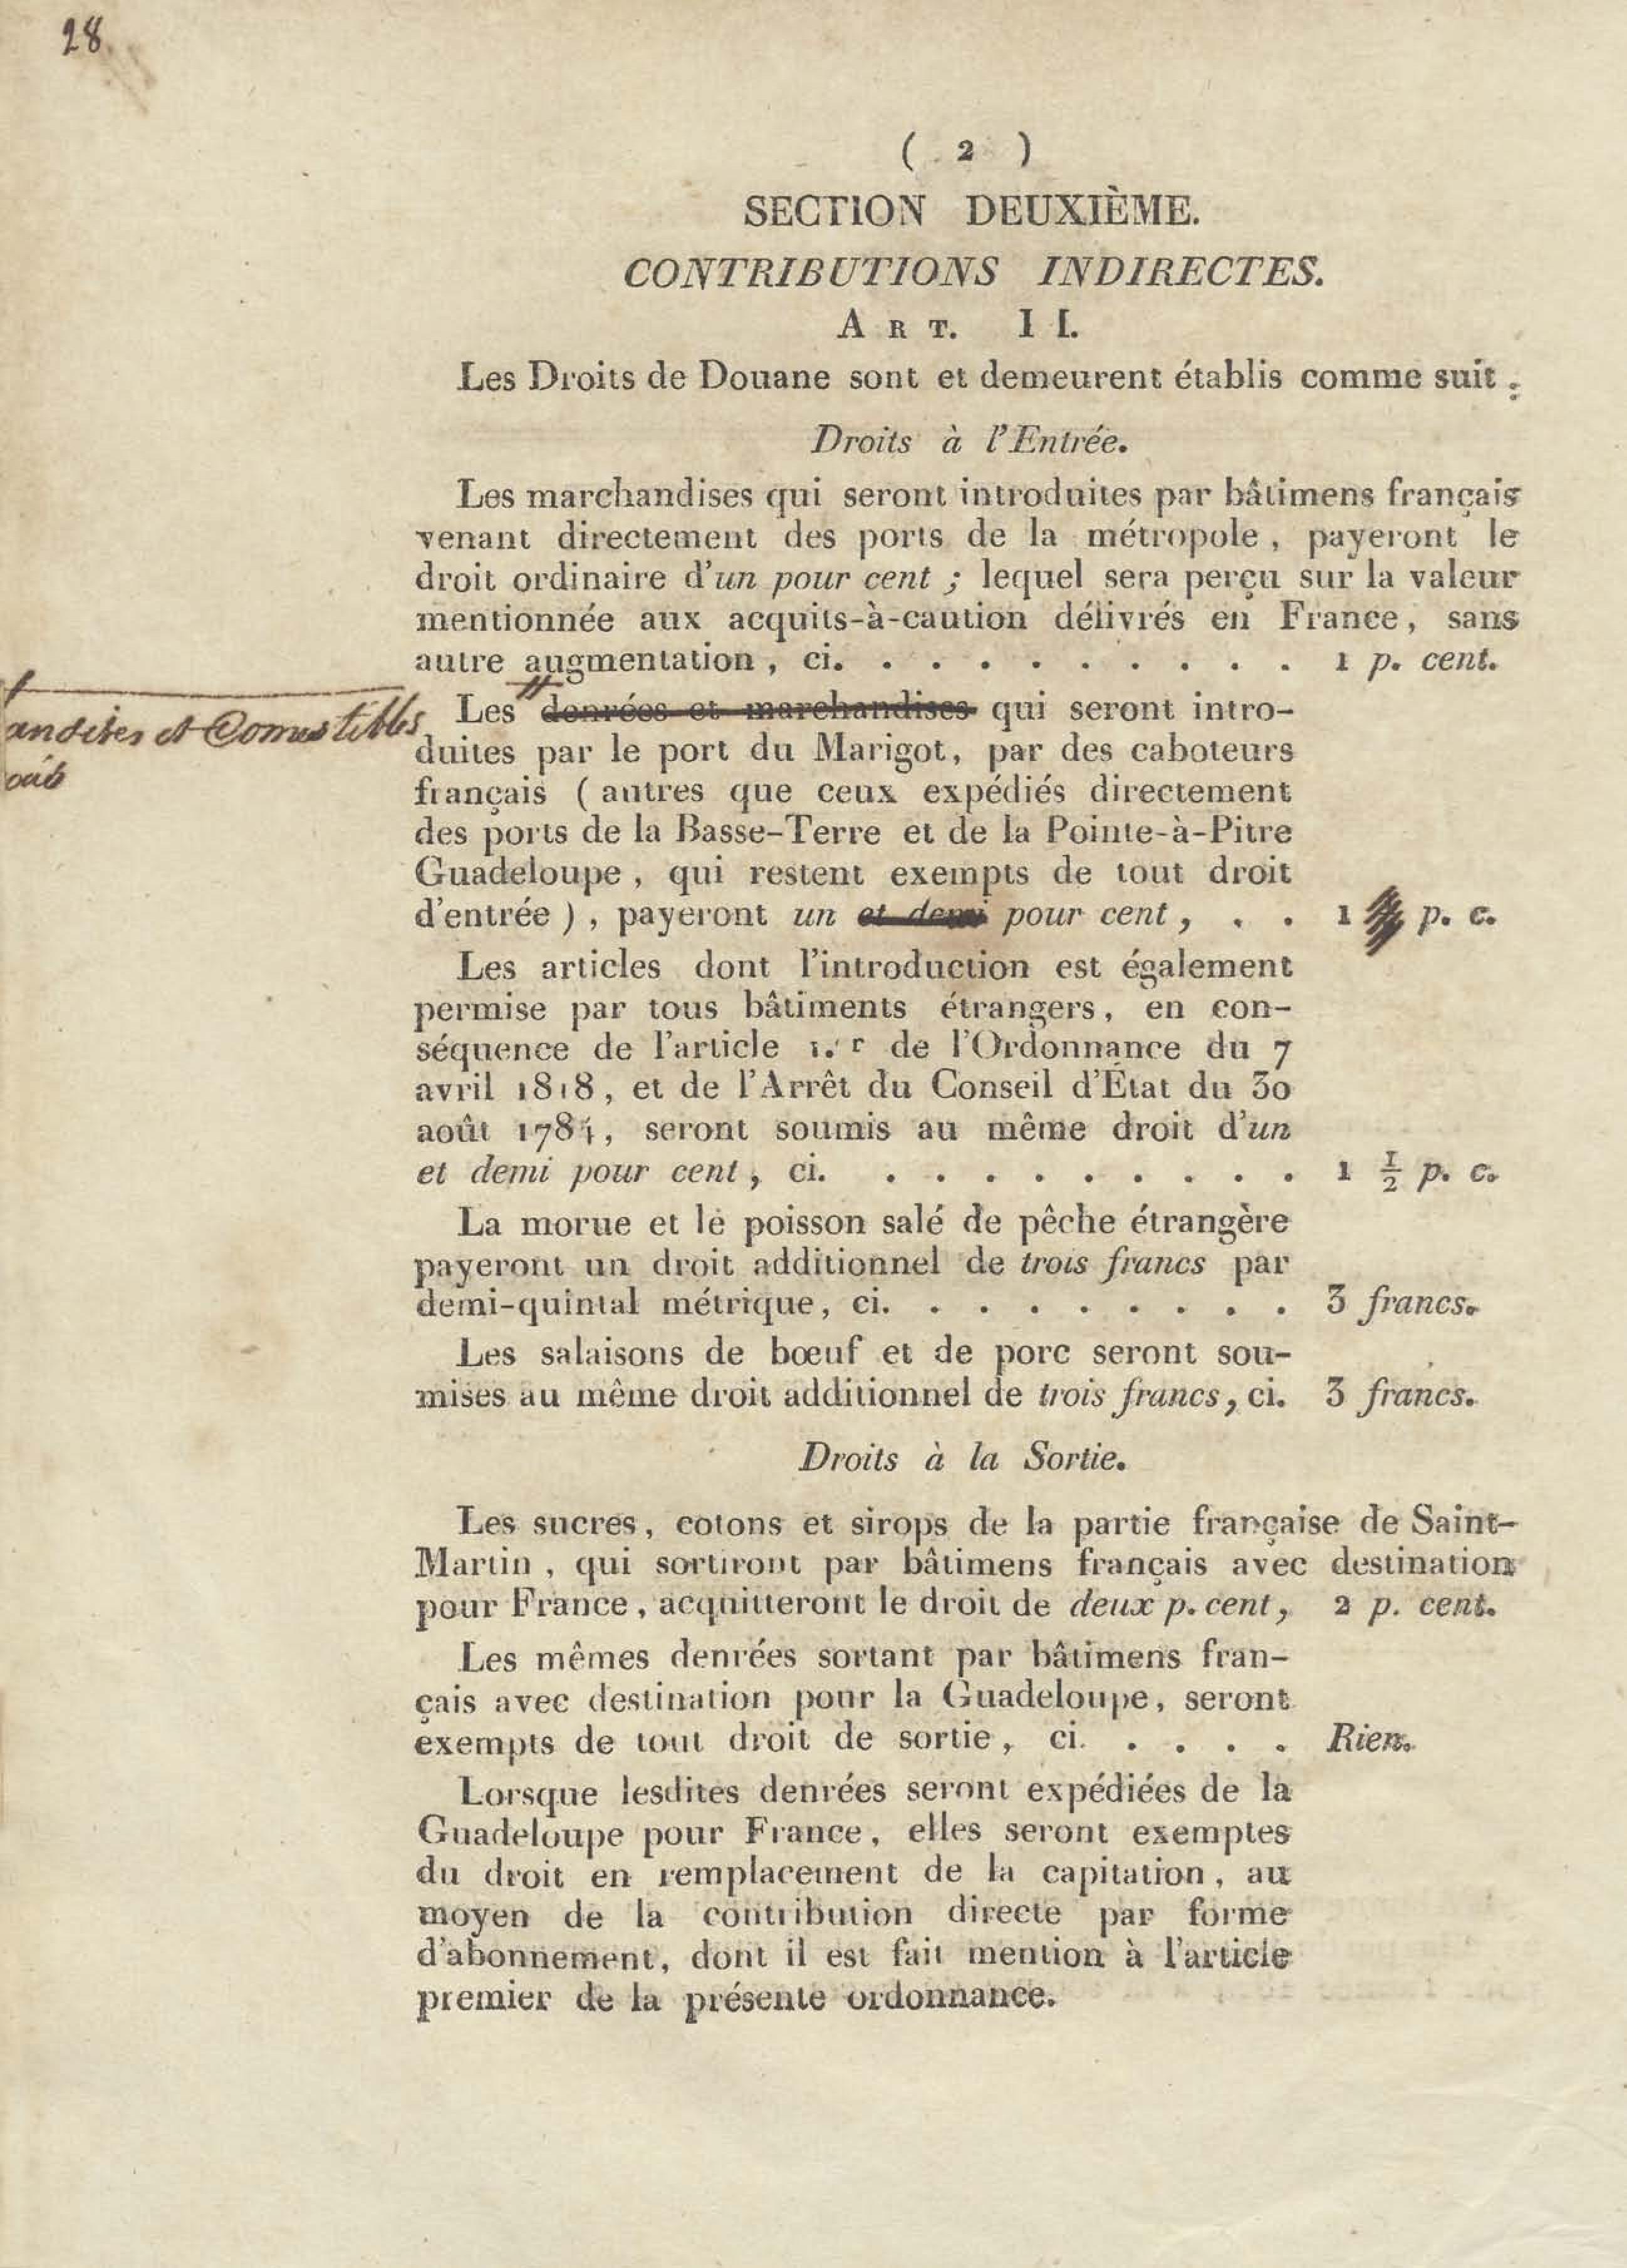 28
( 2 )
SECTION DEUXIÈME.
CONTRIBUTIONS INDIRECTES.
ART. II.
Les Droits de Douane sont et demeurent établis comme suit :
Droits à l'Entrée.
Les marchandises qui seront introduites par bâtimens français
venant directement des ports de la métropole, payeront le
droit ordinaire d'un pour cent ; lequel sera perçu sur la valeur
mentionnée aux acquits-à-caution délivrés en France, sans
autre augmentation, ci. . . . . . . . . . 1 p. cent.
andises et Comestibles
Les denrées et marchandises qui seront intro-
duites par le port du Marigot, par des caboteurs
français ( autres que ceux expédiés directement
des ports de la Basse-Terre et de la Pointe-à-Pitre
Guadeloupe, qui restent exempts de tout droit
d'entrée ), payeront un et demi pour cent, . . 1 p. c.
Les articles dont l'introduction est également
permise par tous bâtiments étrangers, en con-
séquence de l'article 1.er de l'Ordonnance du 7
avril 1818, et de l'Arrêt du Conseil d'État du 30
août 1784, seront soumis au même droit d'un
et demi pour cent, ci. . . . . . . . . . 1 ½ p. c.
La morue et le poisson salé de pêche étrangère
payeront un droit additionnel de trois francs par
demi-quintal métrique, ci. . . . . . . . . 3 francs.
Les salaisons de bœuf et de porc seront sou-
mises au même droit additionnel de trois francs, ci. 3 francs.
Droits à la Sortie.
Les sucres, cotons et sirops de la partie française de Saint-
Martin, qui sortiront par bâtimens français avec destination
pour France, acquitteront le droit de deux p. cent, 2 p. cent.
Les mêmes denrées sortant par bâtimens fran-
çais avec destination pour la Guadeloupe, seront
exempts de tout droit de sortie, ci. . . . . Rien.
Lorsque lesdites denrées seront expédiées de la
Guadeloupe pour France, elles seront exemptes
du droit en remplacement de la capitation, au
moyen de la contribution directe par forme
d'abonnement, dont il est fait mention à l'article
premier de la présente ordonnance.